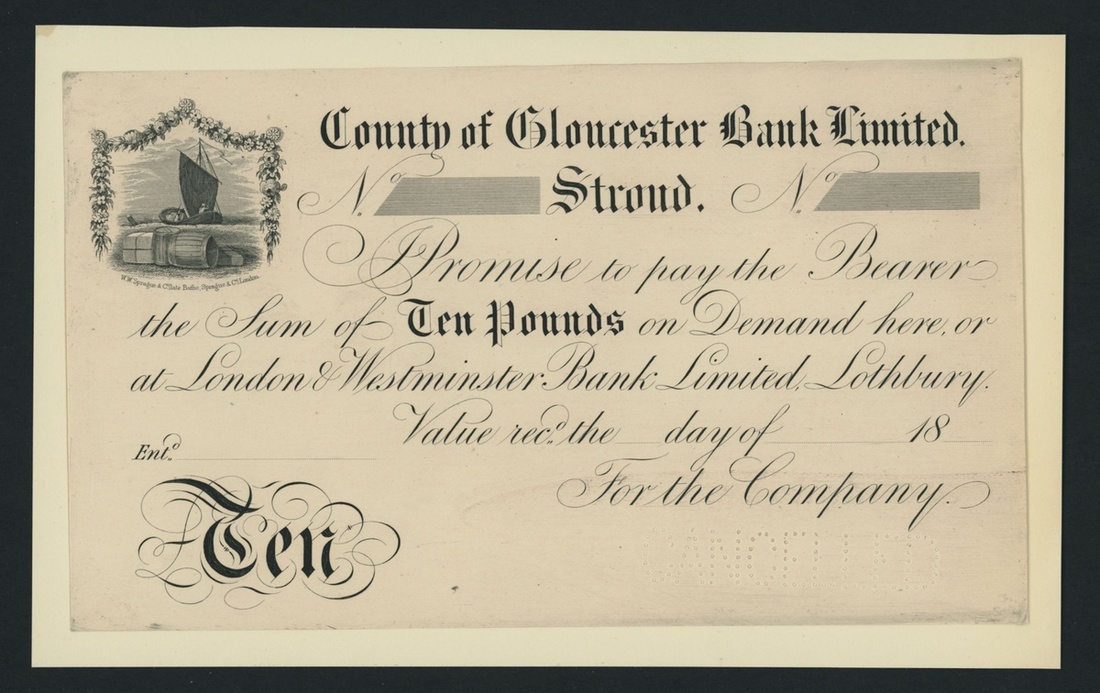 County of Gloucester Bank Limited.
No. Stroud. No.
W.W. Sprague & Co. late Butho, Sprague & Co. London.
I Promise to pay the Bearer
the Sum of Ten Pounds on Demand here, or
at London & Westminster Bank Limited, Lothbury.
Value recd. the day of 18
Entd.
For the Company.
Ten
CANCELLED